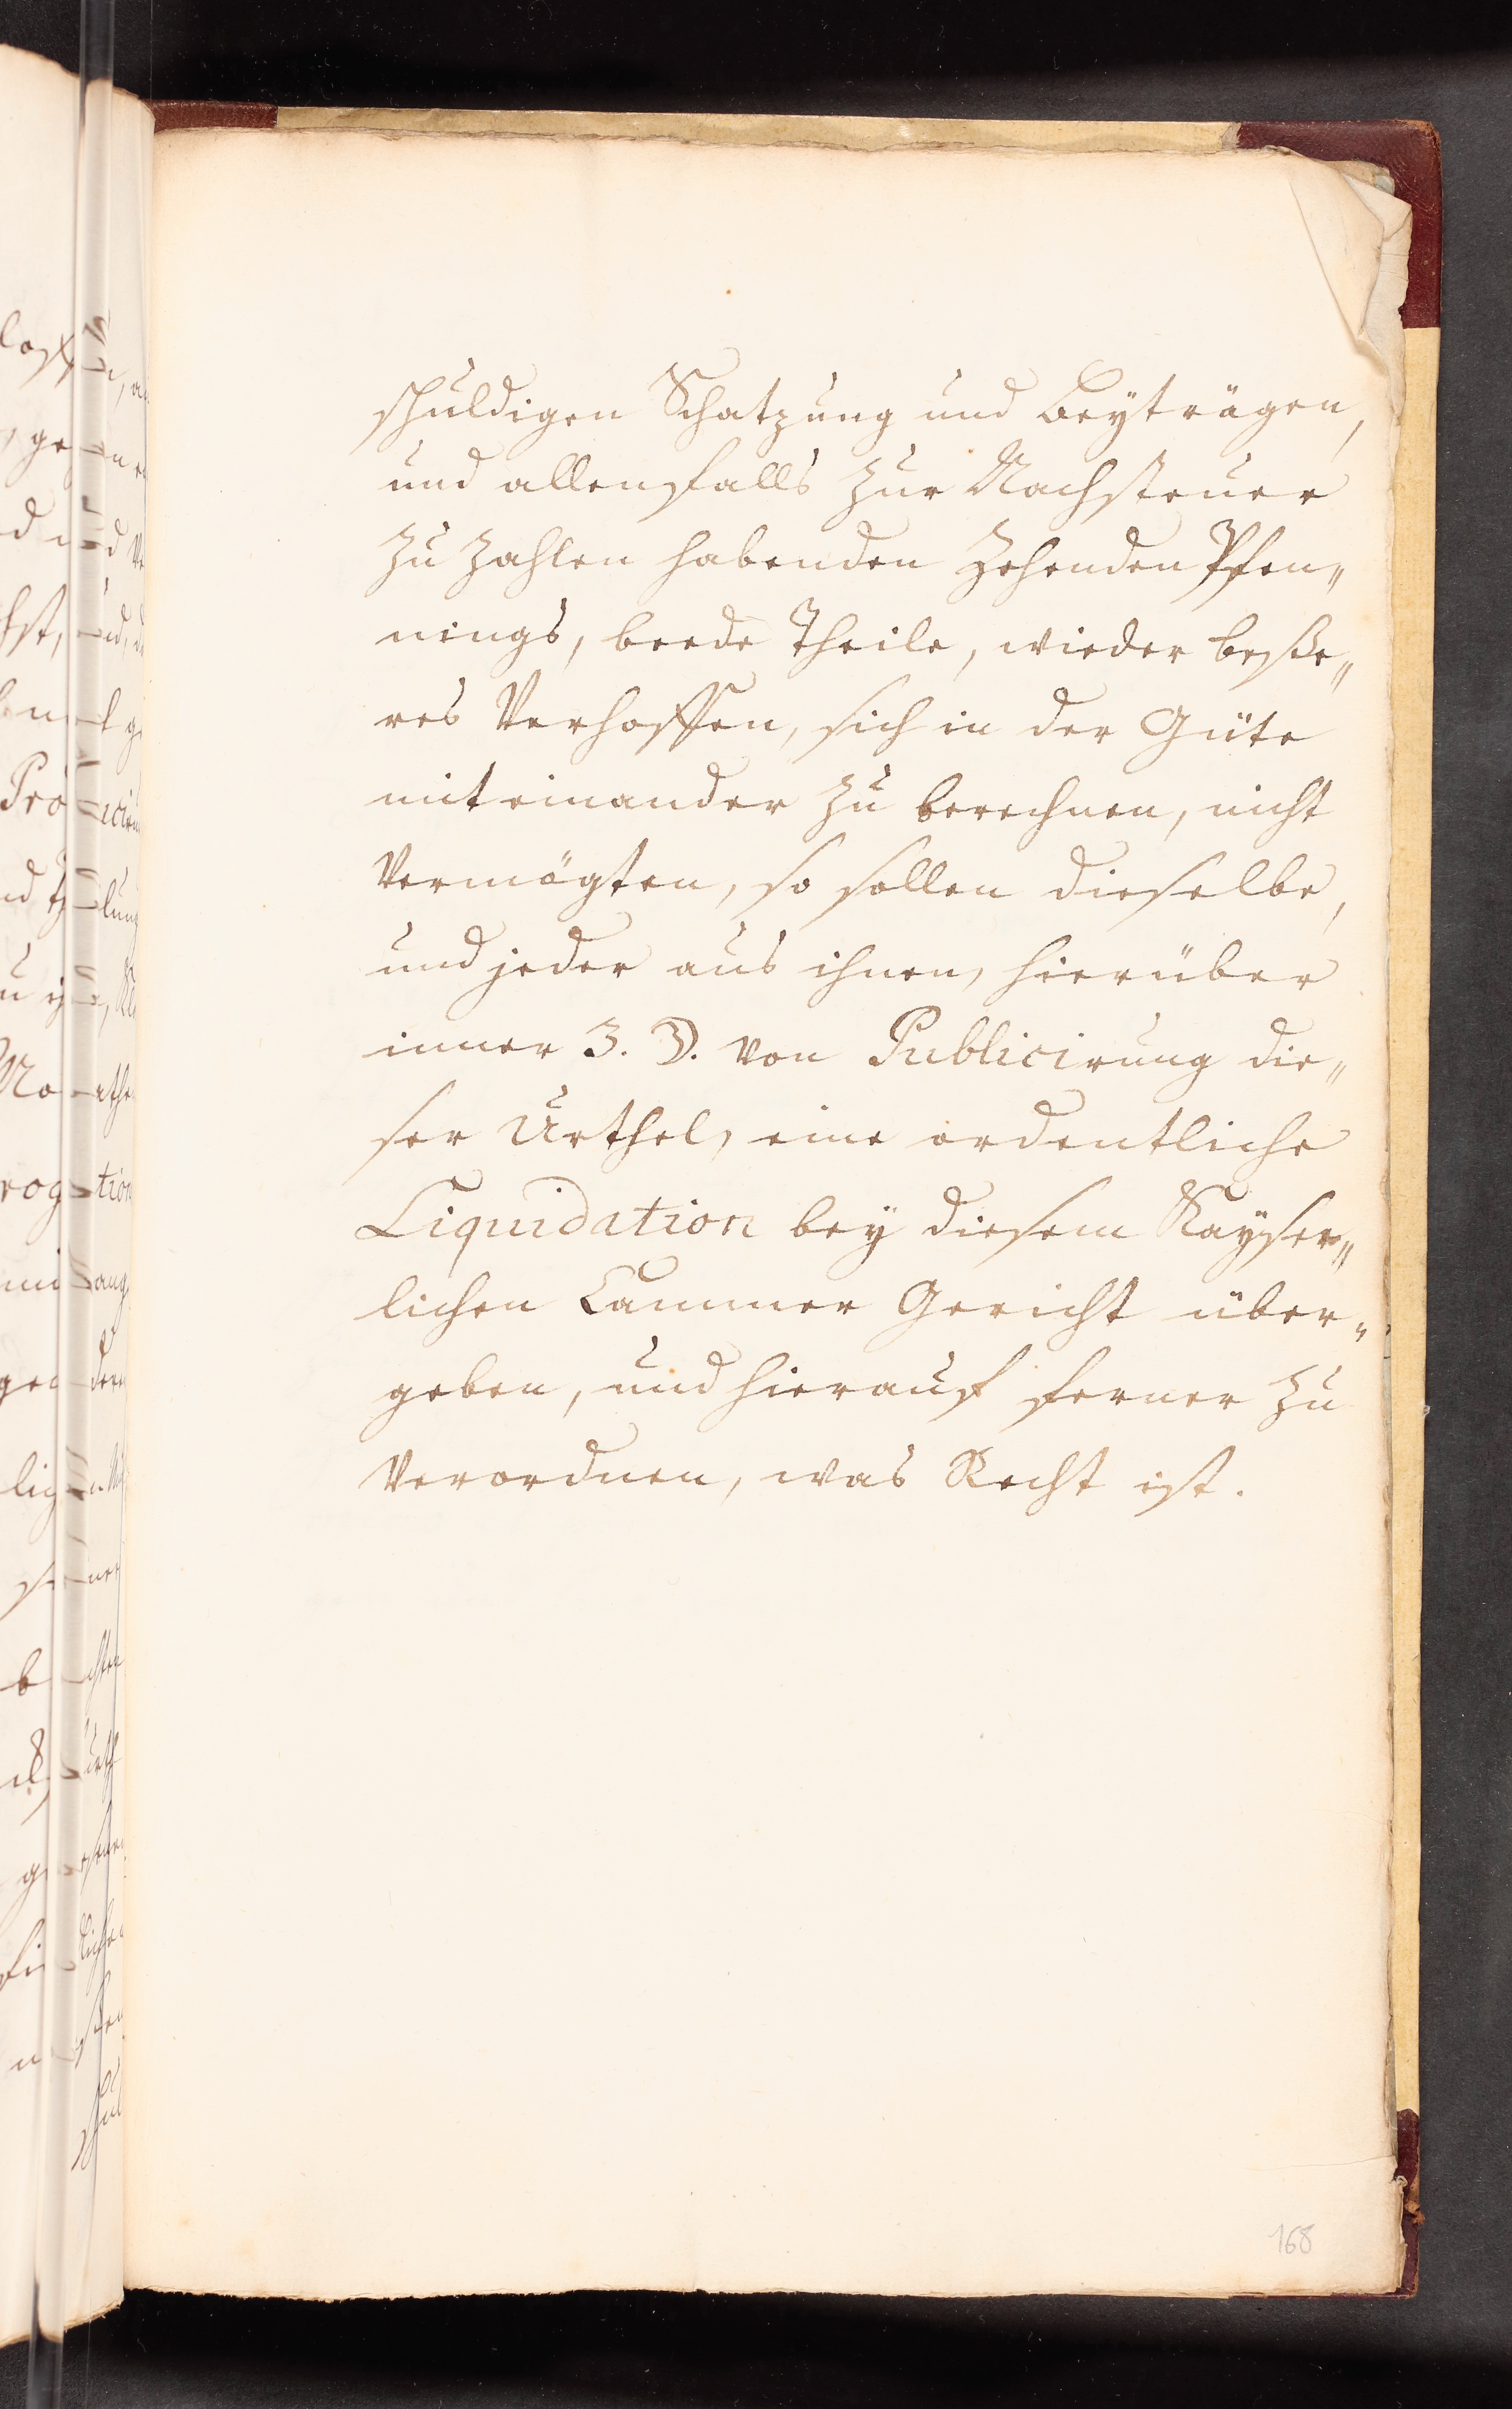 schuldigen Schatzung und Beyträgen,
und allenfalls zur Nachsteuer
zu zahlen habenden zehenden Pfen„
nings, beede Theile, wieder beße„
res Verhoffen, sich in der Güte
mit einander zu berechnen, nicht
vermögten, so sollen dieselbe,
und jeder aus ihnen, hierüber
inner 3. M. von Publicirung die„
ser Urthel, eine ordentliche
Liquidation bey diesem Kayser„
lichen Cammer Gericht über„
geben, und hierauf ferner zu
verordnen, was Recht ist.
168